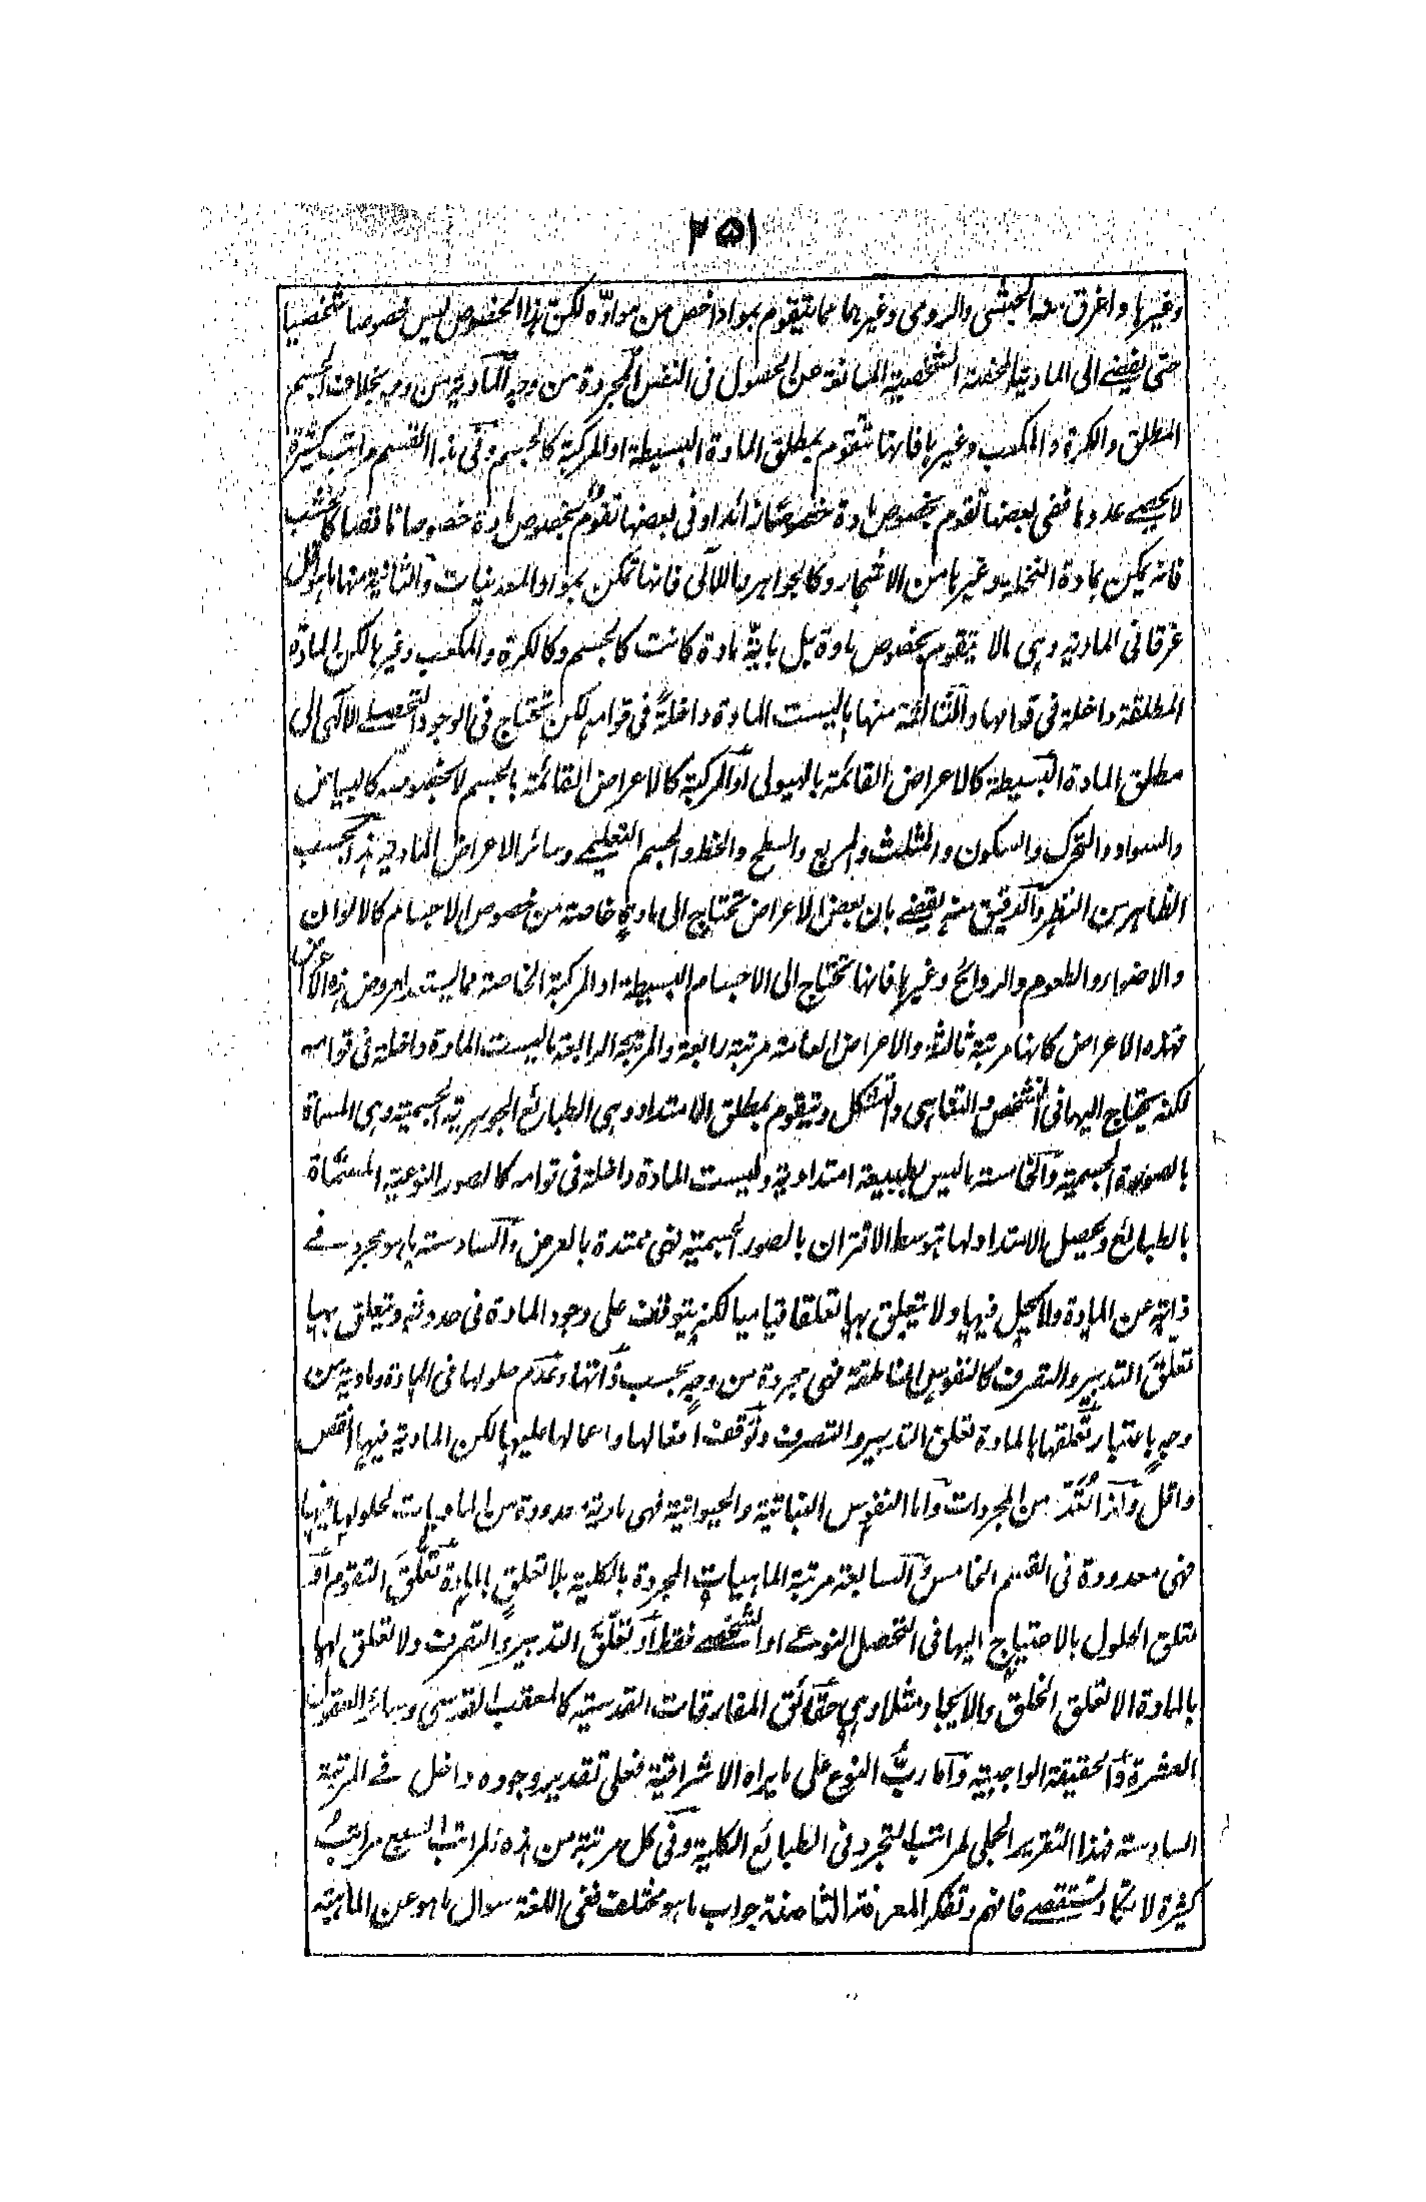 ٢٥١
وغيرها واغرق منه الحبشى والرومى وغيرهما مما يتقوم بمواد اخص من موادّه لكنّ هذا الخصوص ليس خصوصا شخصيا
حتى يفضے الى المادية المحضة الشخصية المانعة عن الحصول فى النفس المجردة من وجه المادية من وجه بخلاف الجسم
المطلق والكرة والمكعب وغيرها فانها تتقوم بمطلق المادة البسيطة او المركبة كالجسم وفى هذا القسم مراتب كثيرة
لا يحصے عددها ففى بعضها تقوم بخصوص مادة خصوصا زائدا وفى بعضها تقوم بخصوص مادة خصوصا ناقصا كالخشب
فانه يمكن بمادة النخلة وغيرها من الاشجار وكالجواهر واللآلى فانها تمكن بمواد المعدنيات والثانية منها ما هو اقل
غرقا فى المادية وهى ما لا يتقوم بخصوص مادة بل باية مادة كانت كالجسم وكالكرة والمكعب وغيرها لكن المادة
المطلقة داخلة فى قوامها والثالثة منها ما ليست المادة داخلةً فى قوامه لكن تحتاج فى الوجود التحصلے الآلهى الى
مطلق المادة البسيطة كالاعراض القائمة بالهيولى او المركبة كالاعراض القائمة بالجسم لا بخصوصه كالبياض
والسواد والتحرك والسكون والمثلث والمربع والسطح والخط والجسم التعليمے وسائر الاعراض المادية هذا بحسب
الظاهر من النظر والدقيق منه يقضے بان بعض الاعراض تحتاج الى مادةٍ خاصة من خصوص الاجسام كالالوان
والاضواء والطعوم والروائح وغيرها فانها تحتاج الى الاجسام البسيطة او المركبة الخاصة مما يستعد لعروض هذه الاعراض
فهذه الاعراض كانها مرتبة ثالثة والاعراض العامة مرتبة رابعة والمرتبة الرابعة ما ليست المادة داخلة فى قوامه
لكنه يحتاج اليها فى التشخص والتناهى والتشكل ويتقوم بمطلق الامتداد وهى الطبائع الجوهرية الجسمية وهى المسماة
بالصورة الجسمية والخامسة ما ليس بطبيعة امتدادية وليست المادة داخلة فى قوامه كالصور النوعية المسماة
بالطبائع ويحصل الامتداد لها بتوسط الاقتران بالصور الجسمية فهى ممتدة بالعرض والسادسة ما هو مجرد فے
ذاته عن المادة ولا يحل فيها ولا يتعلق بها تعلقا قياميا لكنه يتوقف على وجود المادة فى حدوثه ويتعلق بها
تعلّقَ التدبير والتصرف كالنفوس الناطقة فهى مجردة من وجه بحسب ذاتها وعدم حلولها فى المادة ومادية من
وجهٍ باعتبار تعلقها بالمادة تعلق التدبير والتصرف وتوقف افعالها واعمالها عليها لكن المادية فيها انقص
واقل ولذا تُعَدّ من المجردات واما النفوس النباتية والحيوانية فهى مادية معدودة من الماديات لحلولها فيها
فهى معدودة فى القسم الخامس والسابعة مرتبة الماهيات المجردة بالكلية بلا تعلقٍ بالمادة تعلّقَ التقوم او
تعلق الحلول بالاحتياج اليها فى التحصل النوعے او الشخصے فقط او تعلّقَ التدبير والتصرف ولا تعلق لها
بالمادة الا تعلق الخلق والايجاد مثلا وهى حقائق المفارقات القدسية كالعقب القدسى وسائر العقول
العشرة والحقيقة الواجبية واما ربّ النوع على ما يراه الاشراقية فعلى تقدير وجوده داخل فے المرتبة
السادسة فهذا التقرير الجلى لمراتب التجرد فى الطبائع الكلية وفى كل مرتبة من هذه المراتب السبع مراتبُ
كثيرة لا تكاد تستقصے فافهم وتفكر المعرفة الثامنة جواب ما هو مختلف ففى اللغة سوال ما هو عن الماهية